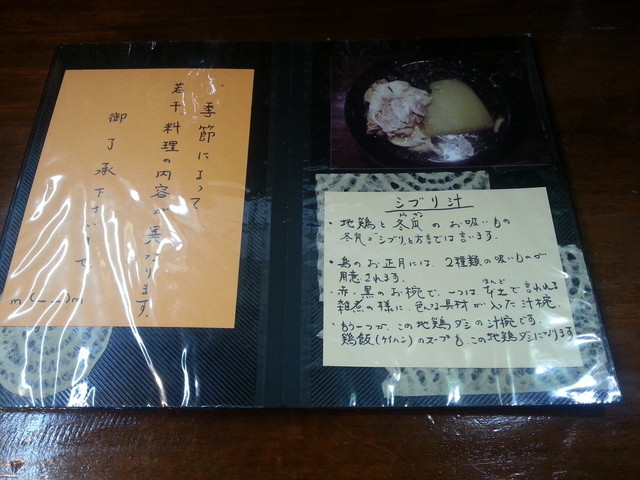 季節によって
若干、料理の内容が異なります。
御了承下さいませ
m(_ _)m
シブリ汁
・地鶏と冬瓜のお吸いもの
冬瓜をシブリと方言では言います。
・島のお正月には、2種類の吸いものが
用意されます。
・赤・黒のお椀で、一つは と言われる
雑煮の様に、色んな具材が入った汁椀。
・もう一つが、この地鶏ダシの汁椀です。
鶏飯(ケイハン)のスープも、この地鶏ダシになります